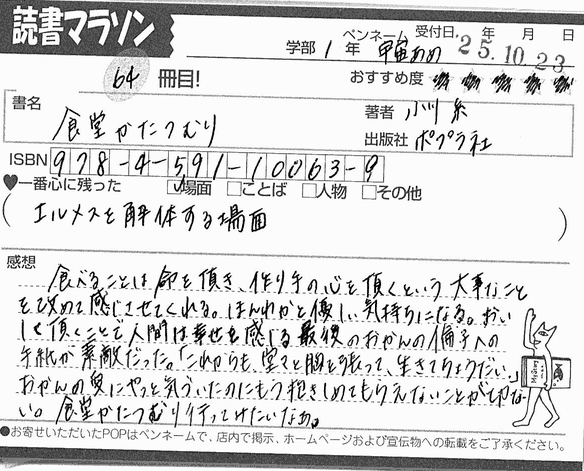 読書マラソン
学部 1 年 ペンネーム 宇宙あめ 受付日 年 月 日
25.10.23
64 冊目!
おすすめ度
書名 食堂かたつむり
著者 小川 糸
出版社 ポプラ社
ISBN 978-4-591-10063-9
♥一番心に残った ☑場面 □ことば □人物 □その他
(エルメスを解体する場面)
感想
食べることは命を頂き、作り手の心を頂くという大事なこと
を改めて感じさせてくれる。ほんわかと優しい気持ちになる。おい
しく頂くことで人間は幸せを感じる。最後のおかんの倫子への
手紙が素敵だった。「これからも、堂々と胸を張って、生きてちょうだい。」
おかんの愛にやっと気づいたのにもう抱きしめてもらえないことがせつな
い。食堂かたつむり行ってみたいなぁ。
●お寄せいただいたPOPはペンネームで、店内で掲示、ホームページおよび宣伝物への転載をご了承ください。